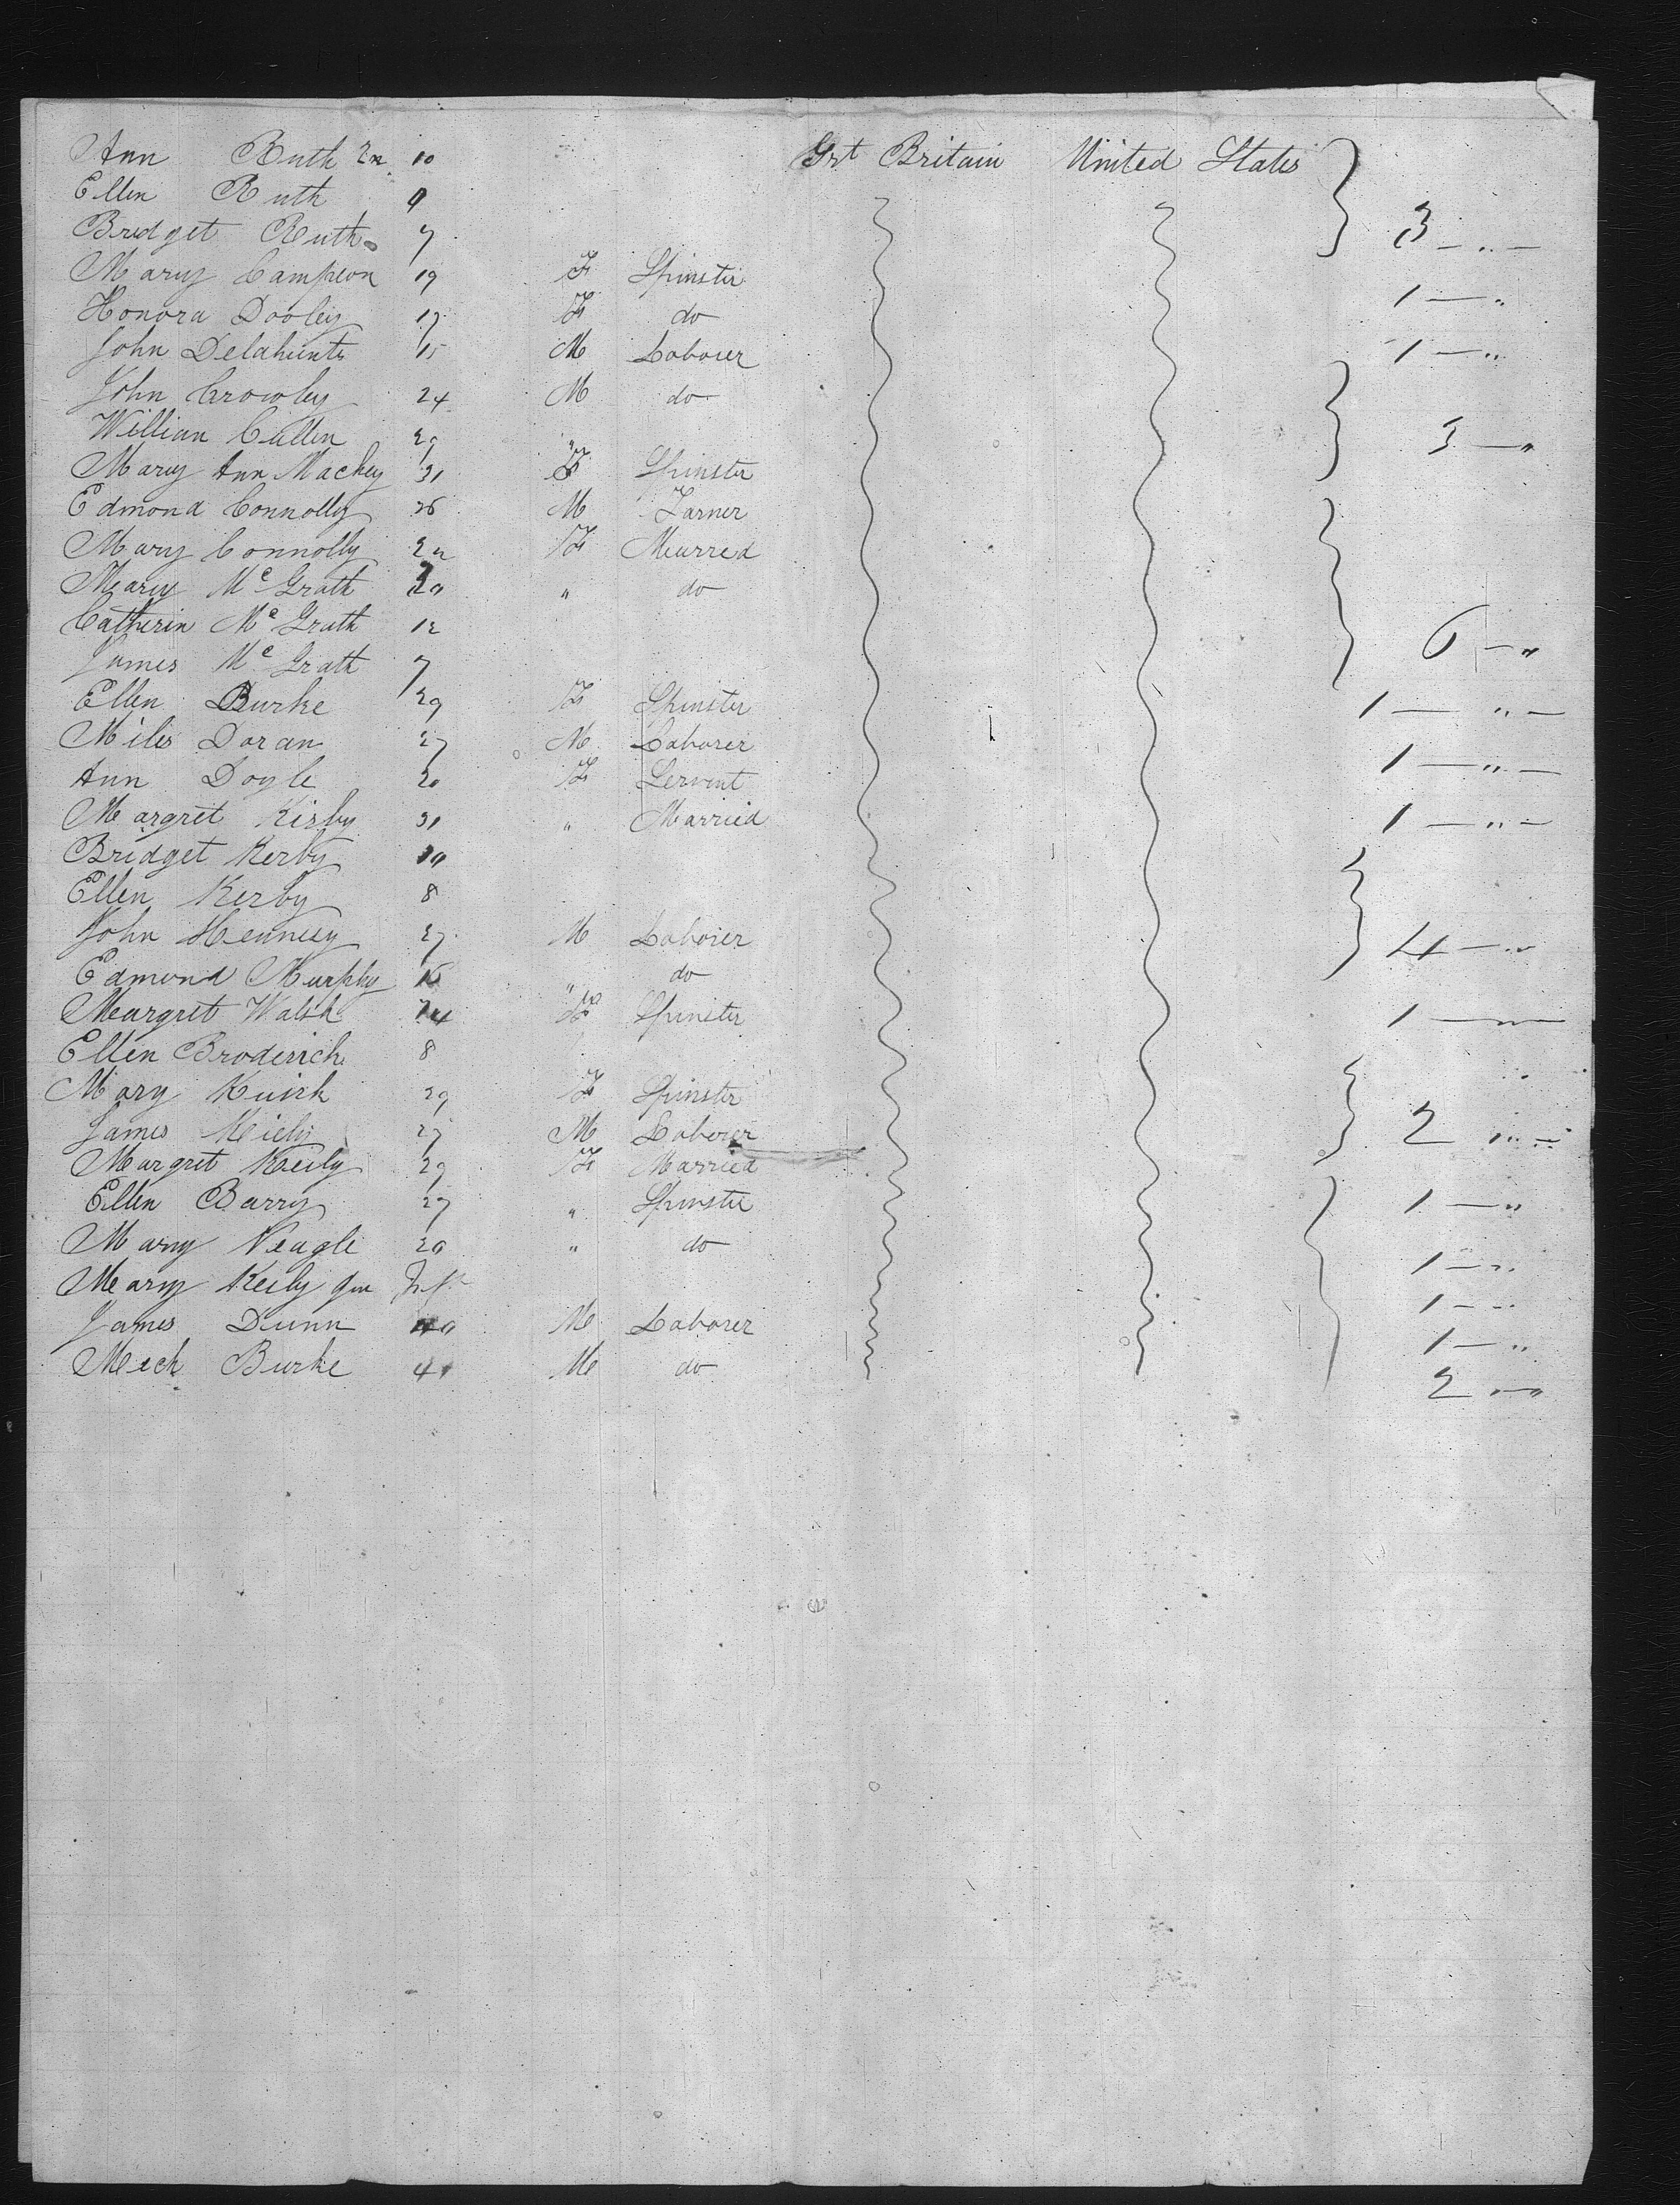 Ann Ruth 2n 10 Grt Britain United States
Ellen Ruth 9
Bridget Ruth 7 3 - " -
Mary Campion 19 F Spinster
Honora Dooley 17 F do 1 - "
John Delahunty 15 M Laborer 1 - "
John Crowley 24 M do
William Cullen 29 " 3 - "
Mary Ann Mackey 31 F Spinster
Edmond Connolly 36 M Farmer
Mary Connolly F Marred
Mary Mc Grath " do
Catherin Mc Grath 12
James Mc Grath 7 6 - "
Ellen Burke 29 F Spinster 1 - " -
Miles Doran 27 M Laborer 1 - " -
Ann Doyle 20 F Servent
Margret Kirby 31 " Married 1 - " -
Bridget Kerby 10
Ellen Kerby 8
John Hennesy 27 M Laborer 4 - "
Edmond Murphy 15 " do
Margret Walsh 14 F Spinster 1 - "
Ellen Broderick 8
Mary Kuirk 29 F Spinster
James Kiely 27 M Laborer 2 " -
Margret Keily 29 F Married
Ellen Barry 27 " Spinster 1 - "
Mary Neagle 20 " do 1 - "
Mary Keily Jun Inf 1 - "
James Dunn 40 M Laborer 1 - "
Mich Burke 41 M do 2 - "